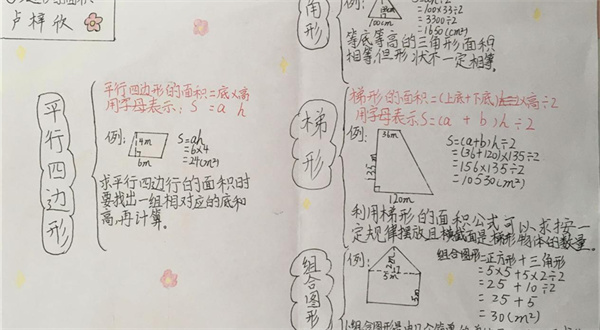 卢梓欣
平行四边形
平行四边形的面积=底×高
用字母表示:S=a h
例:
4m
6m
S=ah
=6×4
=24(m²)
求平行四边行的面积时
要找出一组相对应的底和
高,再计算。
角形
例:
100cm
=100×33÷2
=3300÷2
=1650(cm²)
等底等高的三角形面积
相等,但形状不一定相等。
梯形
梯形的面积=(上底+下底)×高÷2
用字母表示S=(a+b)h÷2
例:
36m
135m
120m
S=(a+b)h÷2
=(36+120)×135÷2
=156×135÷2
=10530(m²)
利用梯形的面积公式可以求按一
定规律摆放且横截面是梯形物体的数量。
组合图形
例:
5m
5m
组合图形=正方形+三角形
=5×5+5×2÷2
=25+10÷2
=25+5
=30(m²)